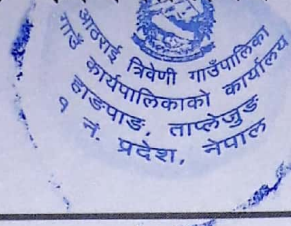 आठराई त्रिवेणी गाउँपालिका
गाउँ कार्यपालिकाको कार्यालय
हाङपाङ, ताप्लेजुङ
१ नं. प्रदेश, नेपाल